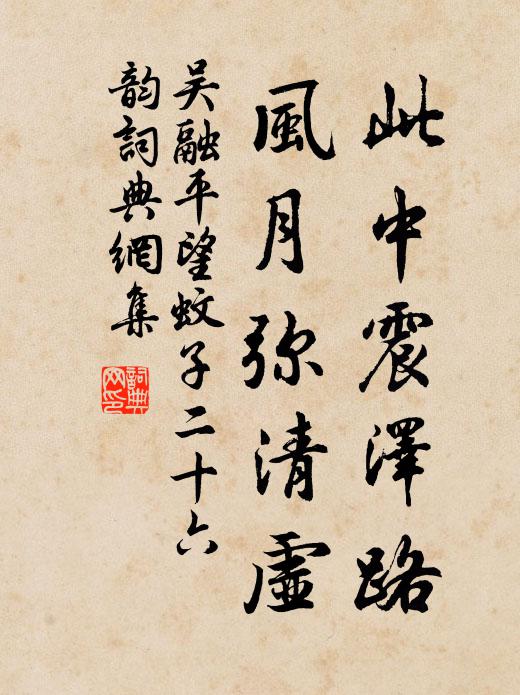 此中震澤路
風月弥清虛
吳融平望蚊子二十六
韵詞典網集
詞典網印